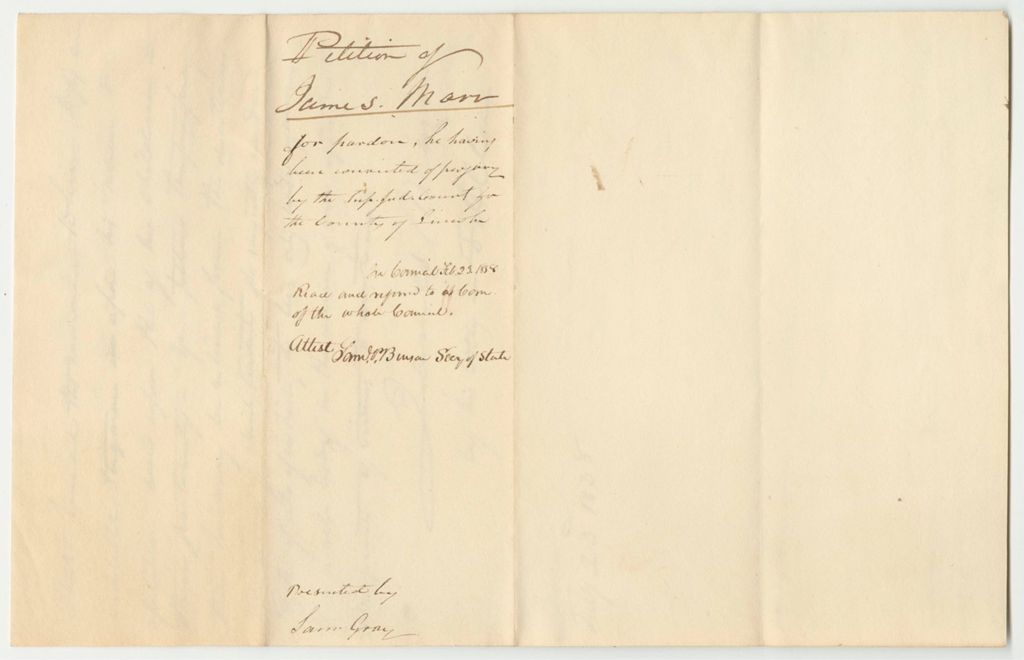 Petition of
James. Marr
for pardon, he having
been convicted of perjury
by the Sup. Jud. Court for
the County of Lincoln
In Council Feb 23. 1838
Read and referred to a Com
of the whole Council.
Attest Saml. P. Benson Secy of State
Presented by
Sam Gray